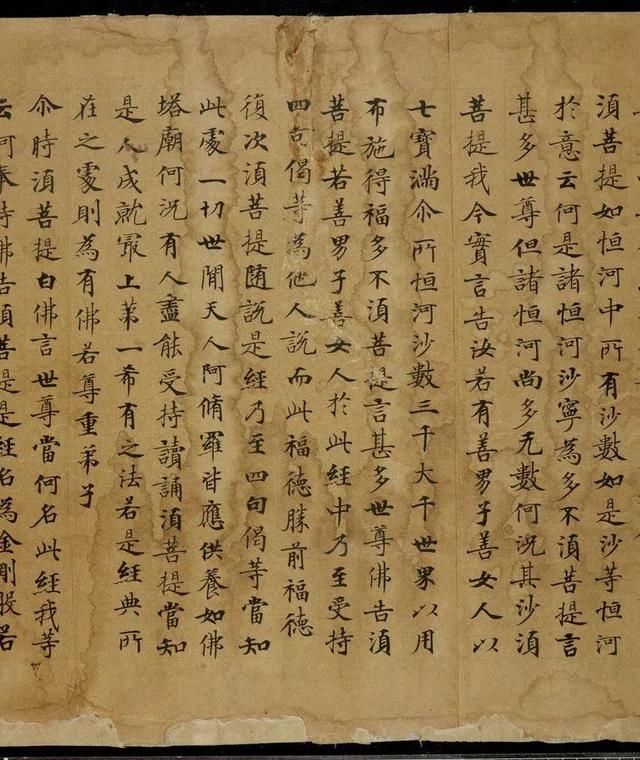 湏菩提如恒河中所有沙數如是沙等恒河
於意云何是諸恒河沙寧為多不湏菩提言
甚多世尊但諸恒河尚多无數何況其沙湏
菩提我今實言告汝若有善男子善女人以
七寶滿尒所恒河沙數三千大千世界以用
布施得福多不湏菩提言甚多世尊佛告湏
菩提若善男子善女人於此經中乃至受持
四句偈等為他人說而此福德勝前福德
復次湏菩提随說是經乃至四句偈等當知
此處一切世間天人阿脩羅皆應供養如佛
塔廟何況有人盡能受持讀誦湏菩提當知
是人成就最上苐一希有之法若是經典所
在之處則為有佛若尊重弟子
尒時湏菩提白佛言世尊當何名此經我等
云何奉持佛告湏菩提是經名為金剛般若